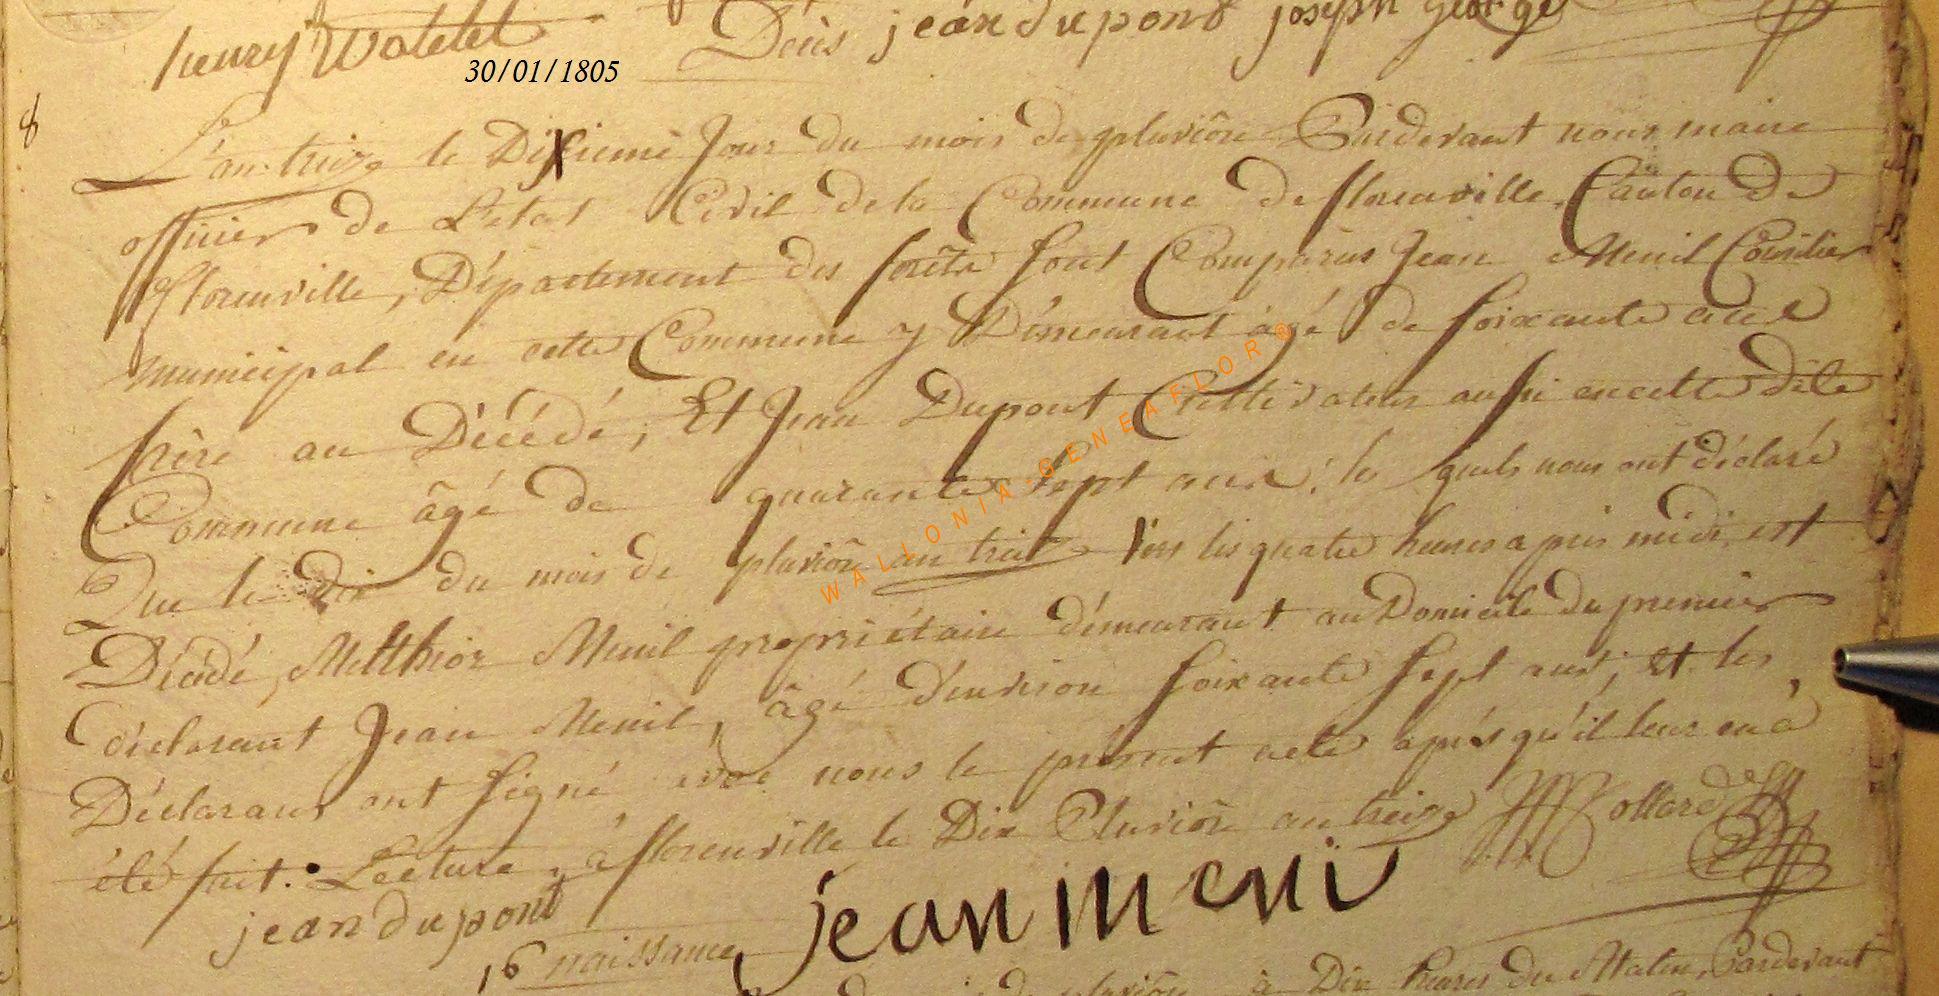 henry Watelet
Déüs jean dupont joseph george
30/01/1805
8
L'an treize le Dixieme Jour du mois de pluviôse Pardevant nous maire
officier de L'etat Civil de la Commune de florenville, Canton de
florenville, Département des forêts sont Comparus Jean Menil Consilier
municipal en cette Commune y Démeurant âgé de soixante ans
frère au Décédé, Et Jean Dupont Cultivateur aussi en cette dite
Commune âgé de quarante sept ans, les quels nous ont déclaré
Que le dix du mois de pluviôse an treize vers les quatre heures apres midi, est
Décédé, Melthior Menil propriétaire démeurant au Domicile du premier
déclarant Jean Menil, âgé d'environ soixante sept ans, et les
Déclarans ont signé avec nous le présent acte aprés qu'il leur en à
été fait. Lecture, à florenville le Dix Pluviôse an treize Collard
jean dupont jean meni
16 naissance
pluviôse à Dix heures du Matin, Pardevant
WALLONIA-GENEAFLOR®